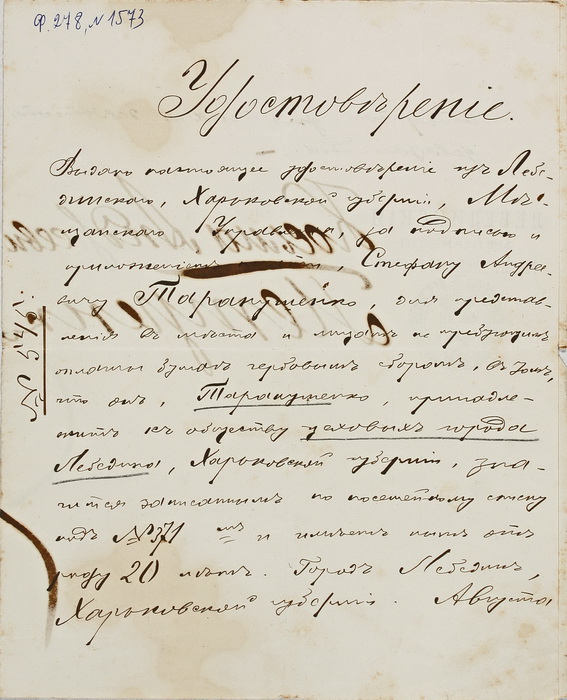 Ф. 278, № 1573
Удостовѣреніе.
Выдано настоящее удостовѣреніе изъ Лебе-
динскаго, Харьковской губерніи, Мѣ-
щанскаго Управленія, за подписью и
приложеніемъ печати, Стефану Андре-
евичу Таранушенко, для представ-
ленія въ мѣста и лицамъ не требующимъ
оплаты бумагъ гербовымъ сборомъ, въ томъ,
что онъ, Таранушенко, принадле-
житъ къ обществу цеховыхъ города
Лебедина, Харьковской губерніи, зна-
чится записаннымъ по посемейному списку
подъ № 371 и имѣетъ нынѣ отъ
роду 20 лѣтъ. Городъ Лебединъ,
Харьковской губерніи. Августа
№ 545.